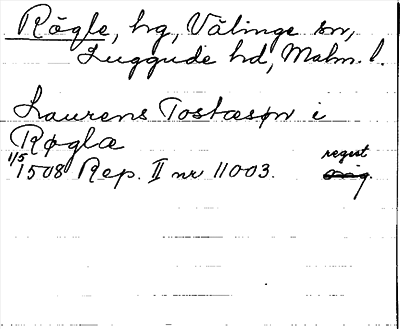 Rögle, hg, Välinge sn,
Luggude hd, Malm. l.
Laurens Tostæsøn i
Røglæ
1/5 1508 Rep. II nr 11003. regest
orig.